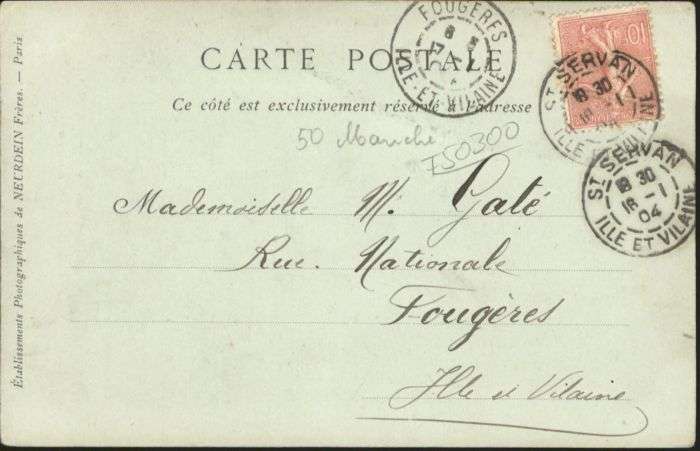 FOUGERES
ILLE-ET-VILAINE
10
CARTE POSTALE
Ce côté est exclusivement réservé à l'adresse
ST SERVAN
18 30
16 - 1
04
ILLE ET VILAINE
50 Manche
750300
ST SERVAN
18 30
16 - 1
04
ILLE ET VILAINE
Mademoiselle M. Galé
Rue. Nationale
Fougères
Ille et Vilaine
Établissements Photographiques de NEURDEIN Frères. — Paris